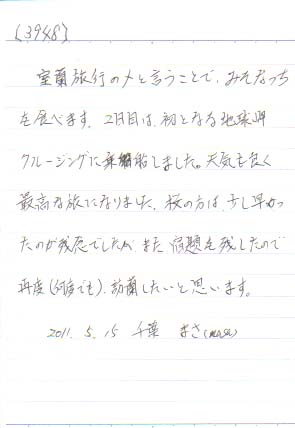 (3948)
室蘭旅行の〆と言うことで、みそなっち
を食べます。2日目は、初となる地球岬
クルージングに乗船しました。天気も良く
最高な旅になりました。桜の方は、少し早かっ
たのが残念でしたが、また宿題を残したので
再度(何度でも)、訪蘭したいと思います。
2011. 5. 15 千葉 まさ(MASA)